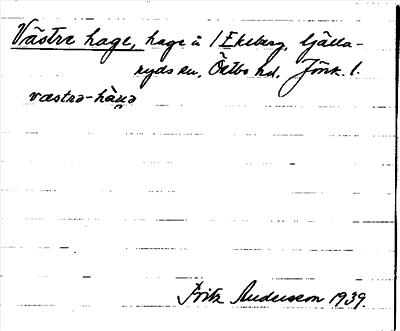 Västra hage, hage å /Ekeberg, Gjälla-
ryds sn, Östbo hd. Jönk. l.
væstrə-hàgə
Fritz Andersson 1939.